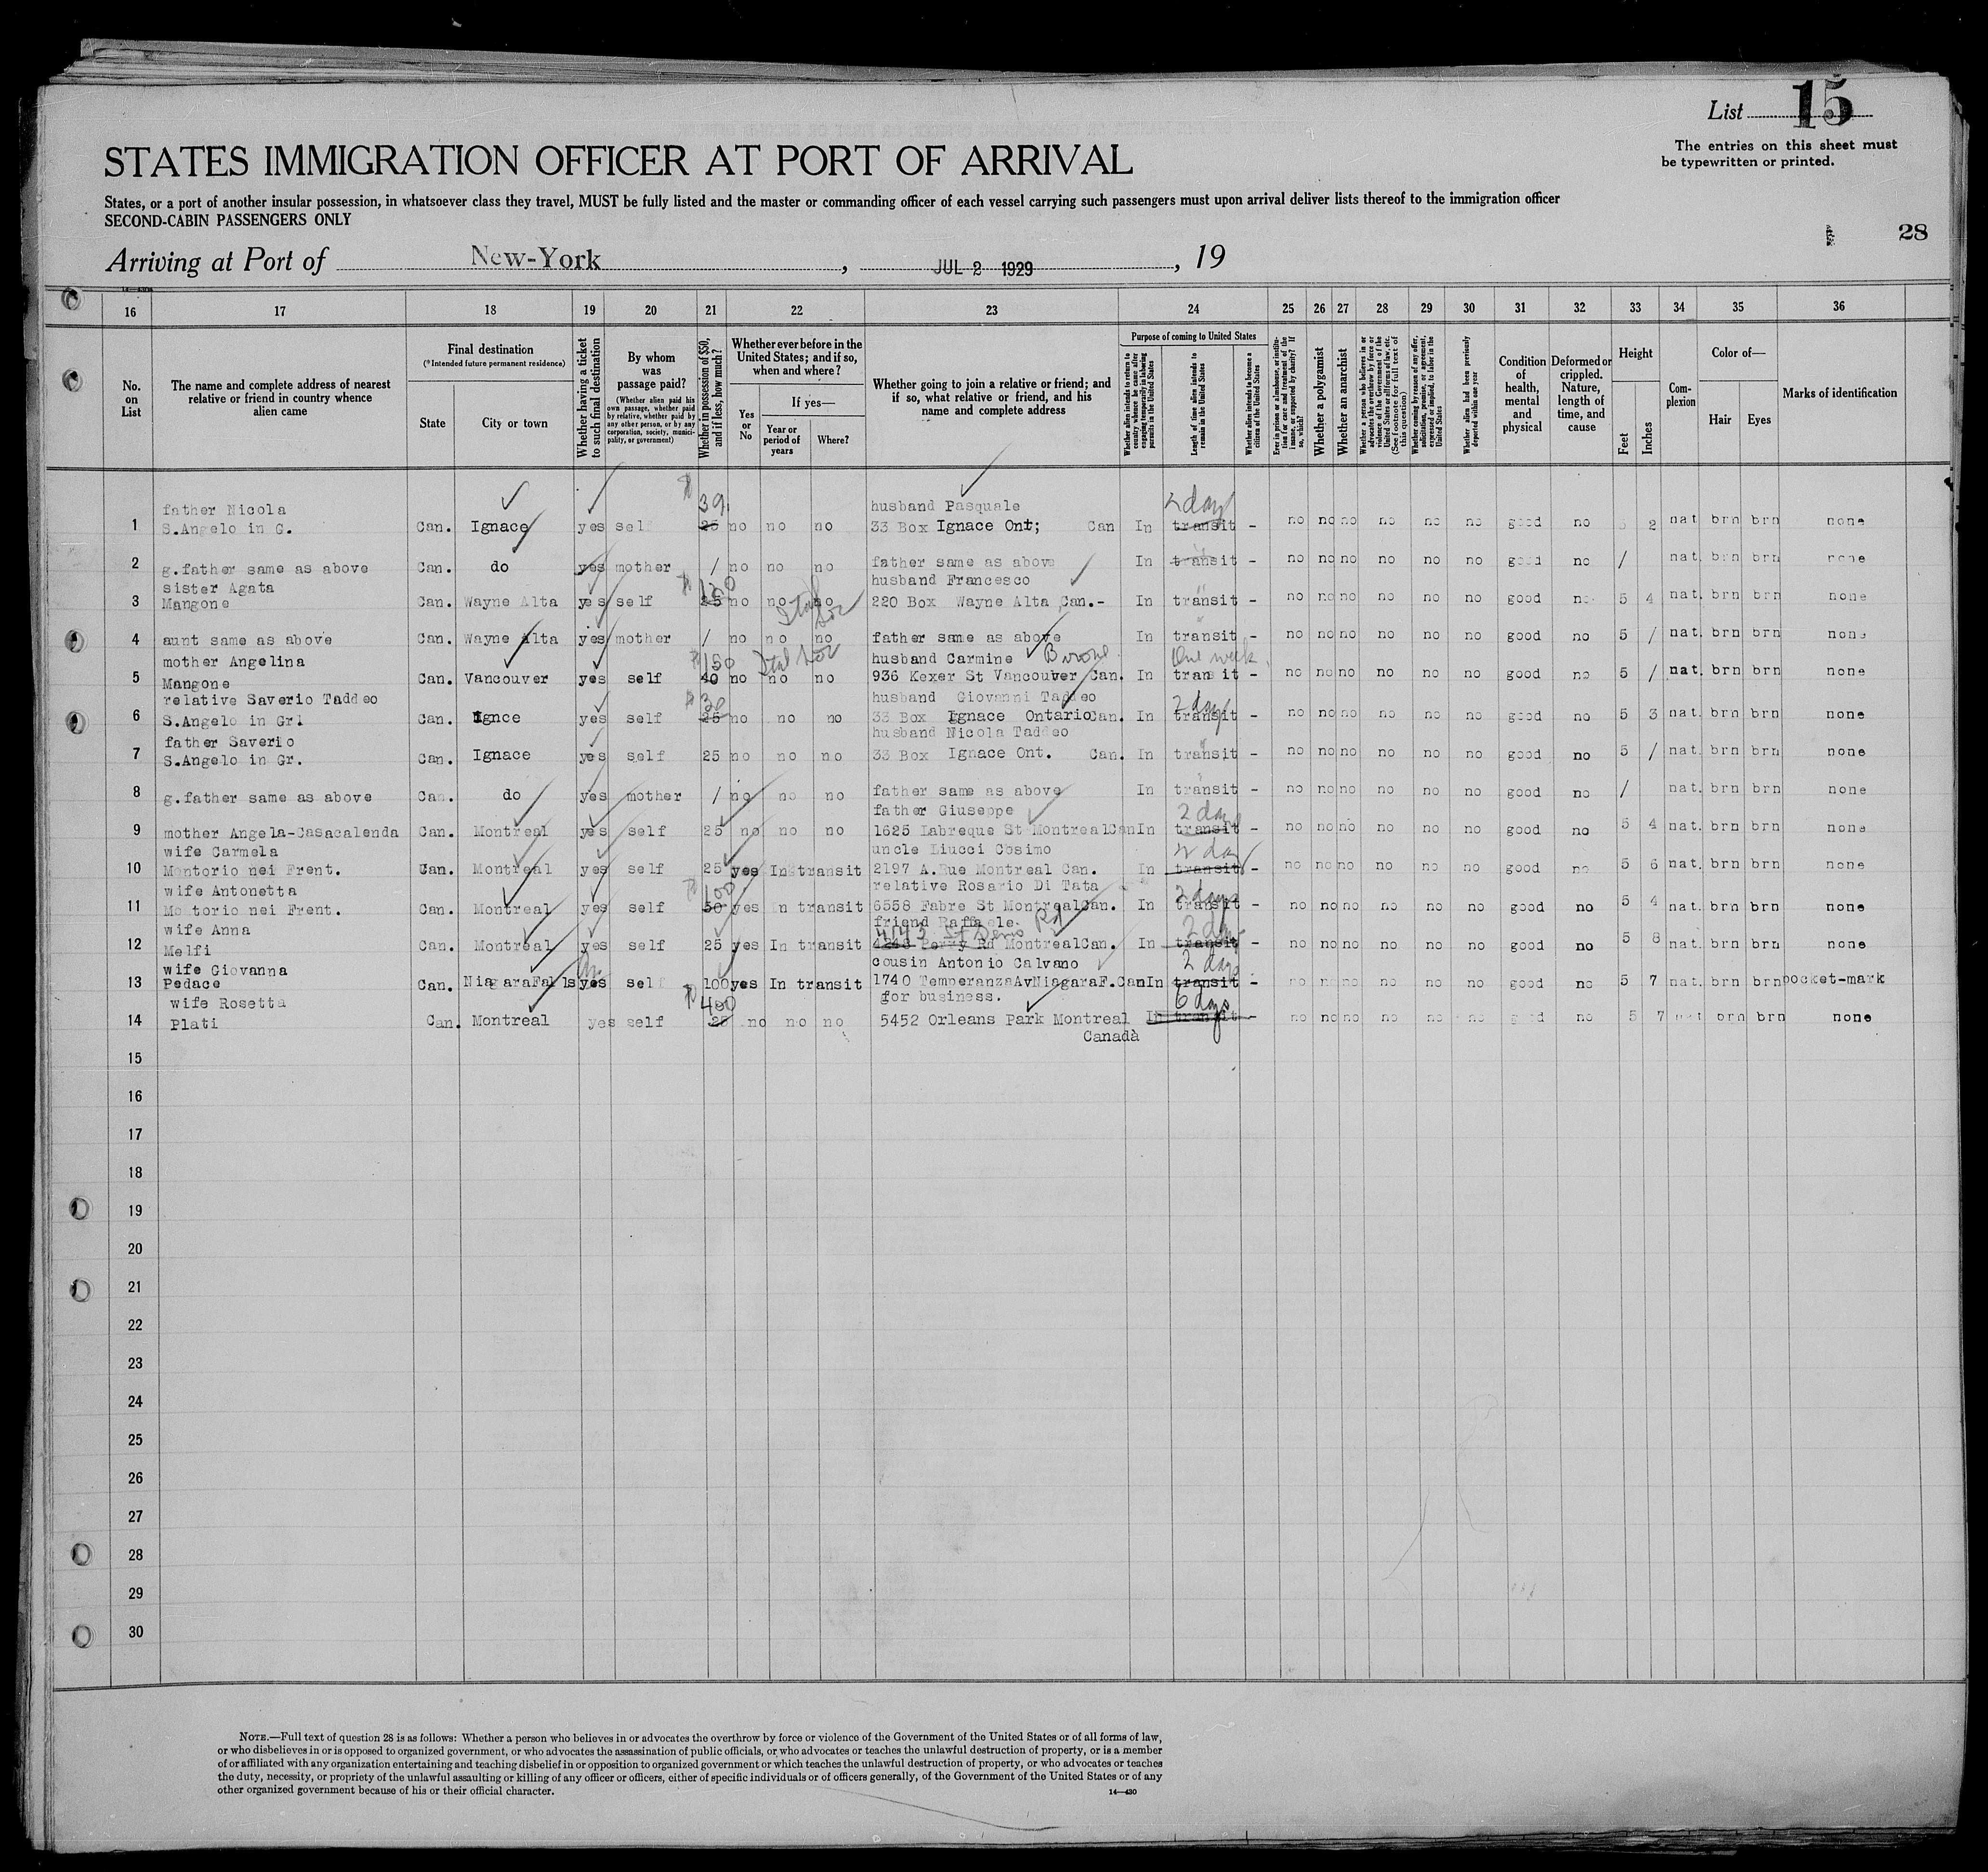 List 15
The entries on this sheet must
be typewritten or printed.
STATES IMMIGRATION OFFICER AT PORT OF ARRIVAL
States, or a port of another insular possession, in whatsoever class they travel, MUST be fully listed and the master or commanding officer of each vessel carrying such passengers must upon arrival deliver lists thereof to the immigration officer
SECOND-CABIN PASSENGERS ONLY
28
Arriving at Port of New-York, JUL 2 1929, 19
16 17 18 19 20 21 22 23 24 25 26 27 28 29 30 31 32 33 34 35 36
No. on List
The name and complete address of nearest relative or friend in country whence alien came
Final destination
(*Intended future permanent residence)
State
City or town
Whether having a ticket to such final destination
By whom was passage paid?
(Whether alien paid his own passage, whether paid by relative, whether paid by any other person, or by any corporation, society, municipality, or government)
Whether in possession of $50, and if less, how much?
Whether ever before in the United States; and if so, when and where?
Yes or No
If yes—
Year or period of years
Where?
Whether going to join a relative or friend; and if so, what relative or friend, and his name and complete address
Purpose of coming to United States
Whether alien intends to return to country whence he came after engaging temporarily in laboring pursuits in the United States
Length of time alien intends to remain in the United States
Whether alien intends to become a citizen of the United States
Ever in prison or almshouse, or institution for care and treatment of the insane, or supported by charity? If so, which?
Whether a polygamist
Whether an anarchist
Whether a person who believes in or advocates the overthrow by force or violence of the Government of the United States or all forms of law, etc. (See footnote for full text of this question)
Whether coming by reason of any offer, solicitation, promise, or agreement, expressed or implied, to labor in the United States
Whether alien had been previously deported within one year
Condition of health, mental and physical
Deformed or crippled. Nature, length of time, and cause
Height
Feet
Inches
Complexion
Color of—
Hair
Eyes
Marks of identification
father Nicola $ 39 husband Pasquale 2 days
1 S.Angelo in G. Can. Ignace yes self 25 no no no 33 Box Ignace Ont; Can In transit - no no no no no no good no 5 2 nat brn brn none
2 g.father same as above Can. do yes mother / no no no father same as above In transit - no no no no no no good no / nat. brn brn none
sister Agata $ husband Francesco
3 Mangone Can. Wayne Alta yes self 25 no no no 220 Box Wayne Alta Can.- In transit - no no no no no no good no 5 4 nat. brn brn none
4 aunt same as above Can. Wayne Alta yes mother / no no no father same as above In transit - no no no no no no good no 5 / nat. brn brn none
mother Angelina $ 150 husband Carmine One week
5 Mangone Can. Vancouver yes self 40 no no no 936 Kexer St Vancouver Can. In transit - no no no no no no good no 5 / nat. brn brn none
relative Saverio Taddeo $ 30 husband Giovanni Taddeo 2 days
6 S.Angelo in Gr. Can. Ignce yes self 25 no no no 33 Box Ignace Ontario Can. In transit - no no no no no no good no 5 3 nat. brn brn none
father Saverio husband Nicola Taddeo
7 S.Angelo in Gr. Can. Ignace yes self 25 no no no 33 Box Ignace Ont. Can. In transit - no no no no no no good no 5 / nat. brn brn none
8 g.father same as above Can. do yes mother / no no no father same as above In transit - no no no no no no good no / nat. brn brn none
father Giuseppe 2 days
9 mother Angela-Casacalenda Can. Montreal yes self 25 no no no 1625 Labreque St Montreal Can In transit - no no no no no no good no 5 4 nat. brn brn none
wife Carmela uncle Liucci Cosimo
10 Montorio nei Frent. Can. Montreal yes self 25 yes In transit 2197 A.Rue Montreal Can. In transit - no no no no no no good no 5 6 nat. brn brn none
wife Antonetta $ 100 relative Rosario Di Tata 2 days
11 Montorio nei Frent. Can. Montreal yes self 50 yes In transit 6558 Fabre St Montreal Can. In transit - no no no no no no good no 5 4 nat. brn brn none
wife Anna friend Raffaele 2 days
12 Melfi Can. Montreal yes self 25 yes In transit Perry Rd Montreal Can. In transit - no no no no no no good no 5 8 nat. brn brn none
wife Giovanna cousin Antonio Calvano 2 days
13 Pedace Can. Niagara Falls yes self 100 yes In transit 1740 TemperanzaAvNiagaraF.Can In transit - no no no no no no good no 5 7 nat. brn brn pocket-mark
wife Rosetta $ 400 for business. 6 days
14 Plati Can. Montreal yes self 25 no no no 5452 Orleans Park Montreal In transit - no no no no no no good no 5 7 nat brn brn none
Canada
15
16
17
18
19
20
21
22
23
24
25
26
27
28
29
30
NOTE.—Full text of question 28 is as follows: Whether a person who believes in or advocates the overthrow by force or violence of the Government of the United States or of all forms of law,
or who disbelieves in or is opposed to organized government, or who advocates the assassination of public officials, or who advocates or teaches the unlawful destruction of property, or is a member
of or affiliated with any organization entertaining and teaching disbelief in or opposition to organized government or which teaches the unlawful destruction of property, or who advocates or teaches
the duty, necessity, or propriety of the unlawful assaulting or killing of any officer or officers, either of specific individuals or of officers generally, of the Government of the United States or of any
other organized government because of his or their official character.
14—430